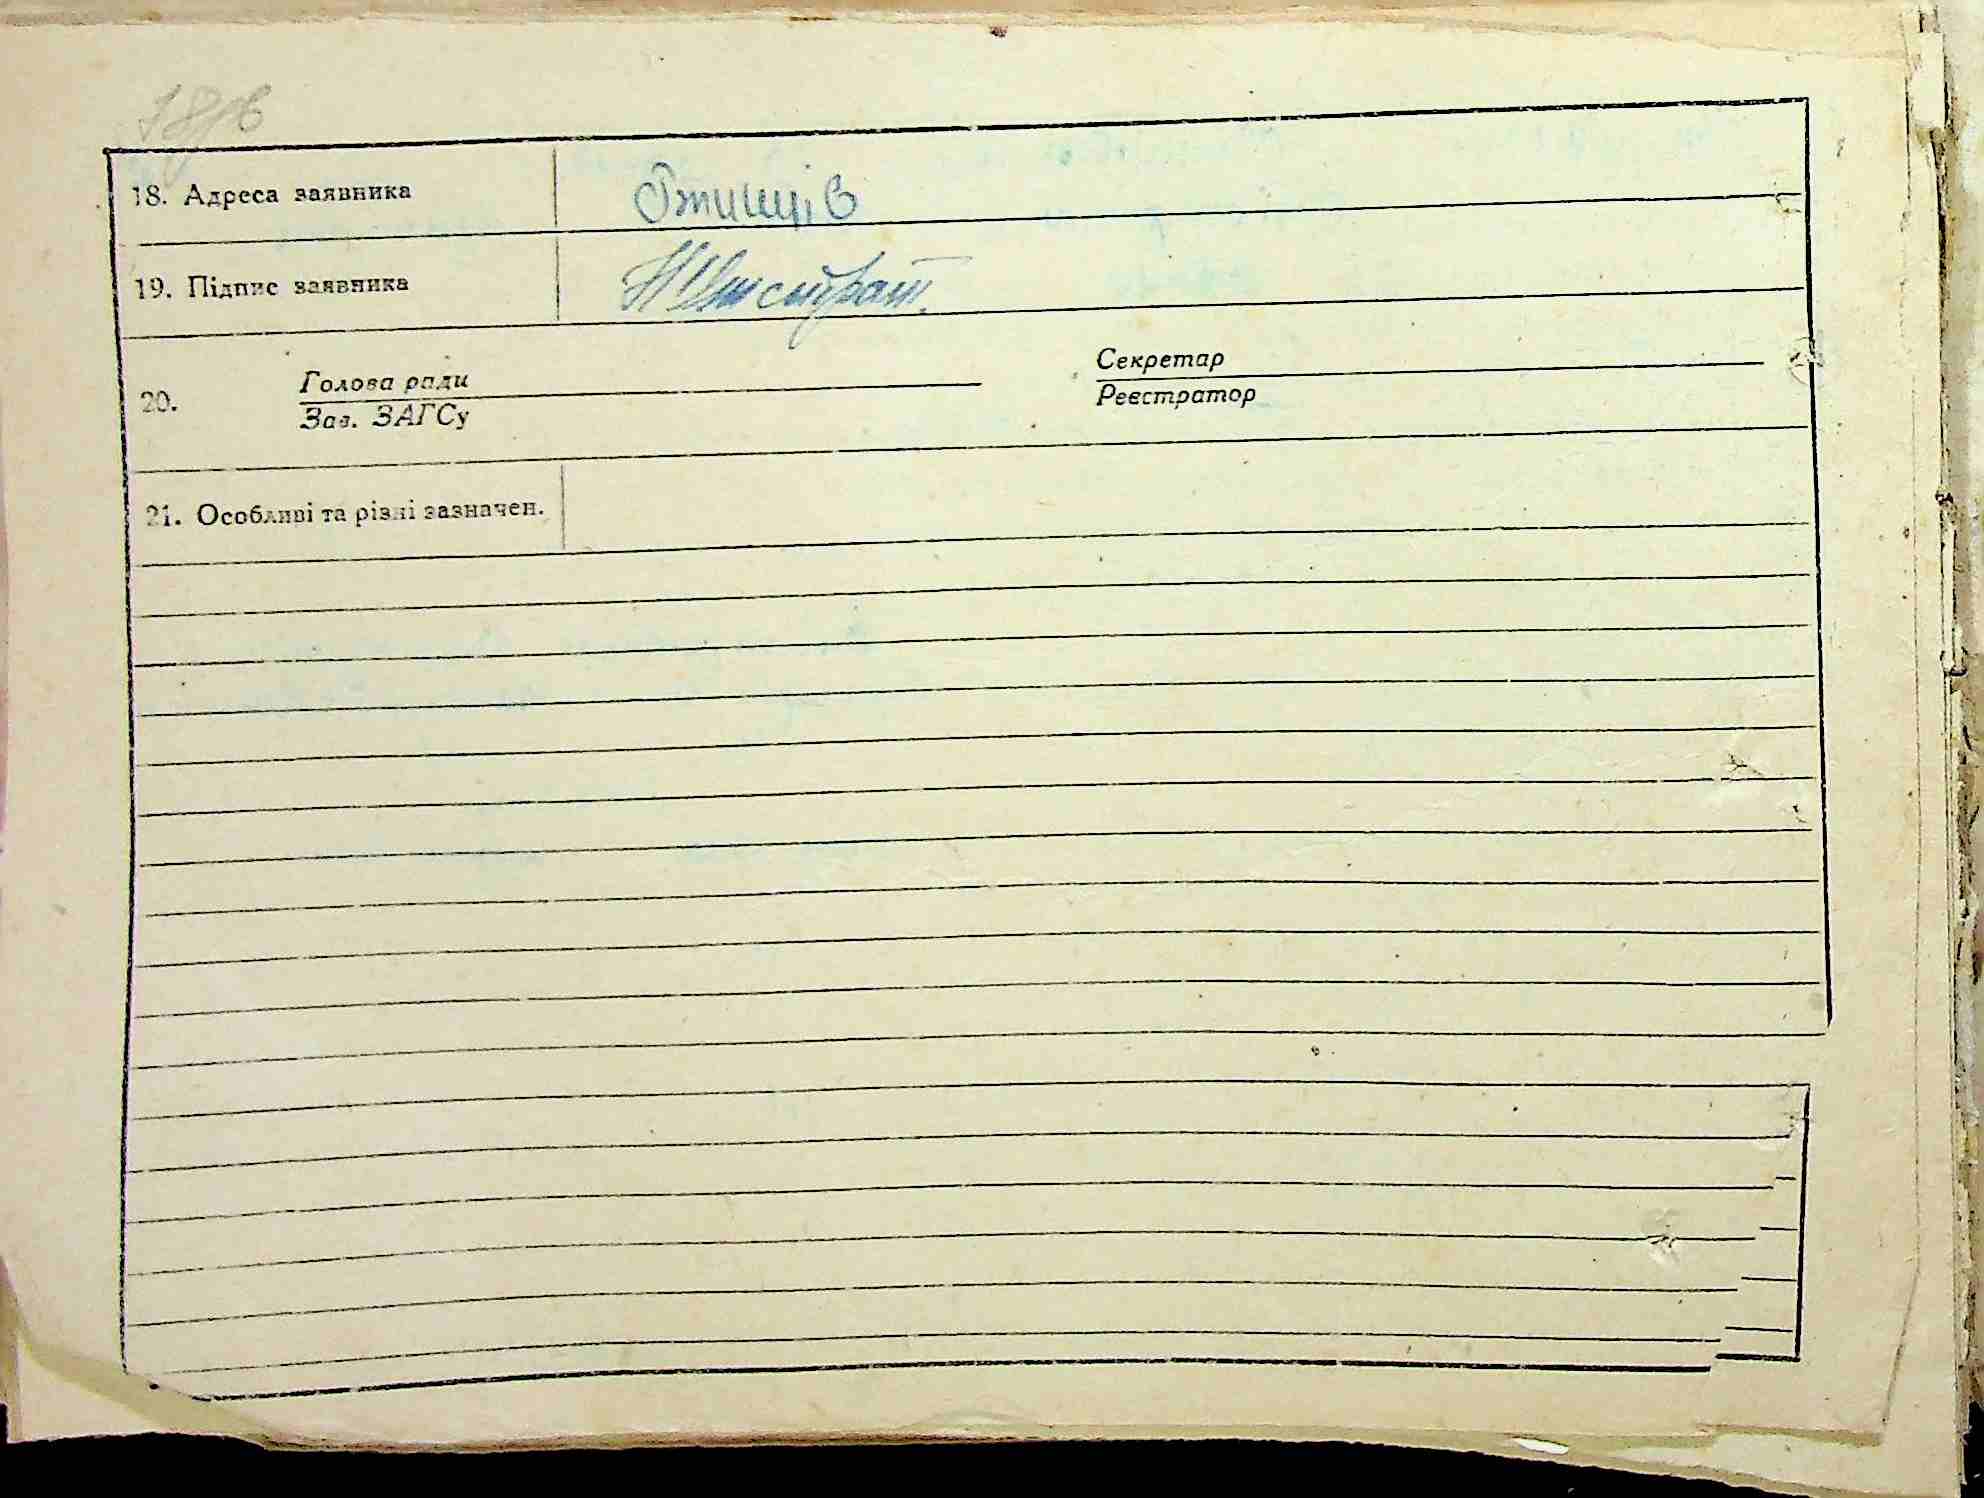 18. Адреса заявника Ржищів
19. Підпис заявника
20. Голова ради Секретар
Зав. ЗАГСу Реєстратор
21. Особливі та різні зазначен.